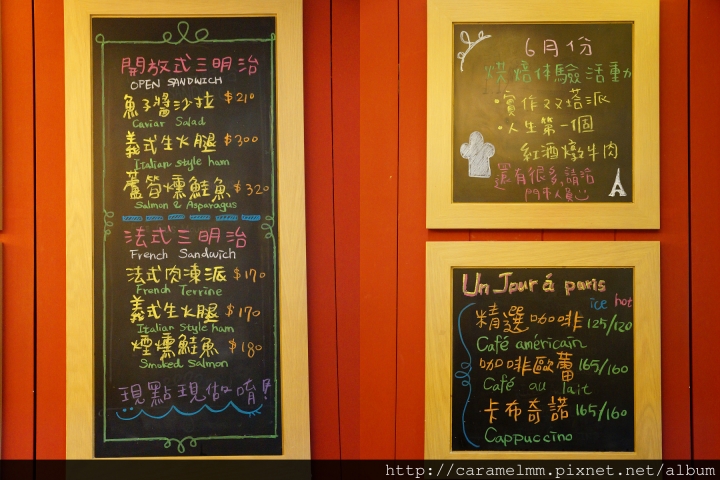 開放式三明治
OPEN SANDWICH
魚子醬沙拉 $210
Caviar Salad
義式生火腿 $300
Italian style ham
蘆筍燻鮭魚 $320
Salmon & Asparagus
法式三明治
French Sandwich
法式肉凍派 $170
French Terrine
義式生火腿 $170
Italian Style ham
煙燻鮭魚 $180
Smoked Salmon
現點現做唷!
6月份
烘焙体驗活動
·實作ㄡㄡ塔派
·人生第一個
紅酒燉牛肉
還有很多,請洽
門市人員
Un Jour á paris
ice hot
精選咖啡 125/120
Café américain
咖啡歐蕾 165/160
Café au lait
卡布奇諾 165/160
Cappuccino
http://caramelmm.pixnet.net/album